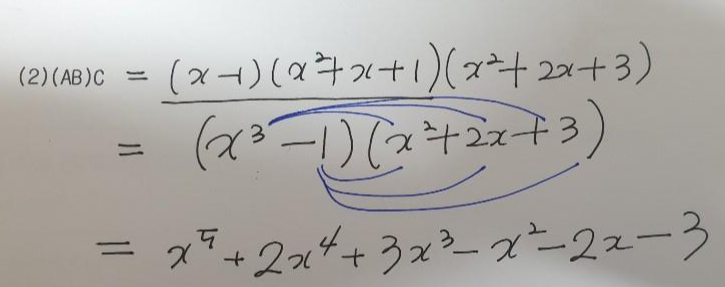 (2)(AB)C = (x-1)(x²+x+1)(x²+2x+3)
= (x³-1)(x²+2x+3)
= x⁵+2x⁴+3x³-x²-2x-3